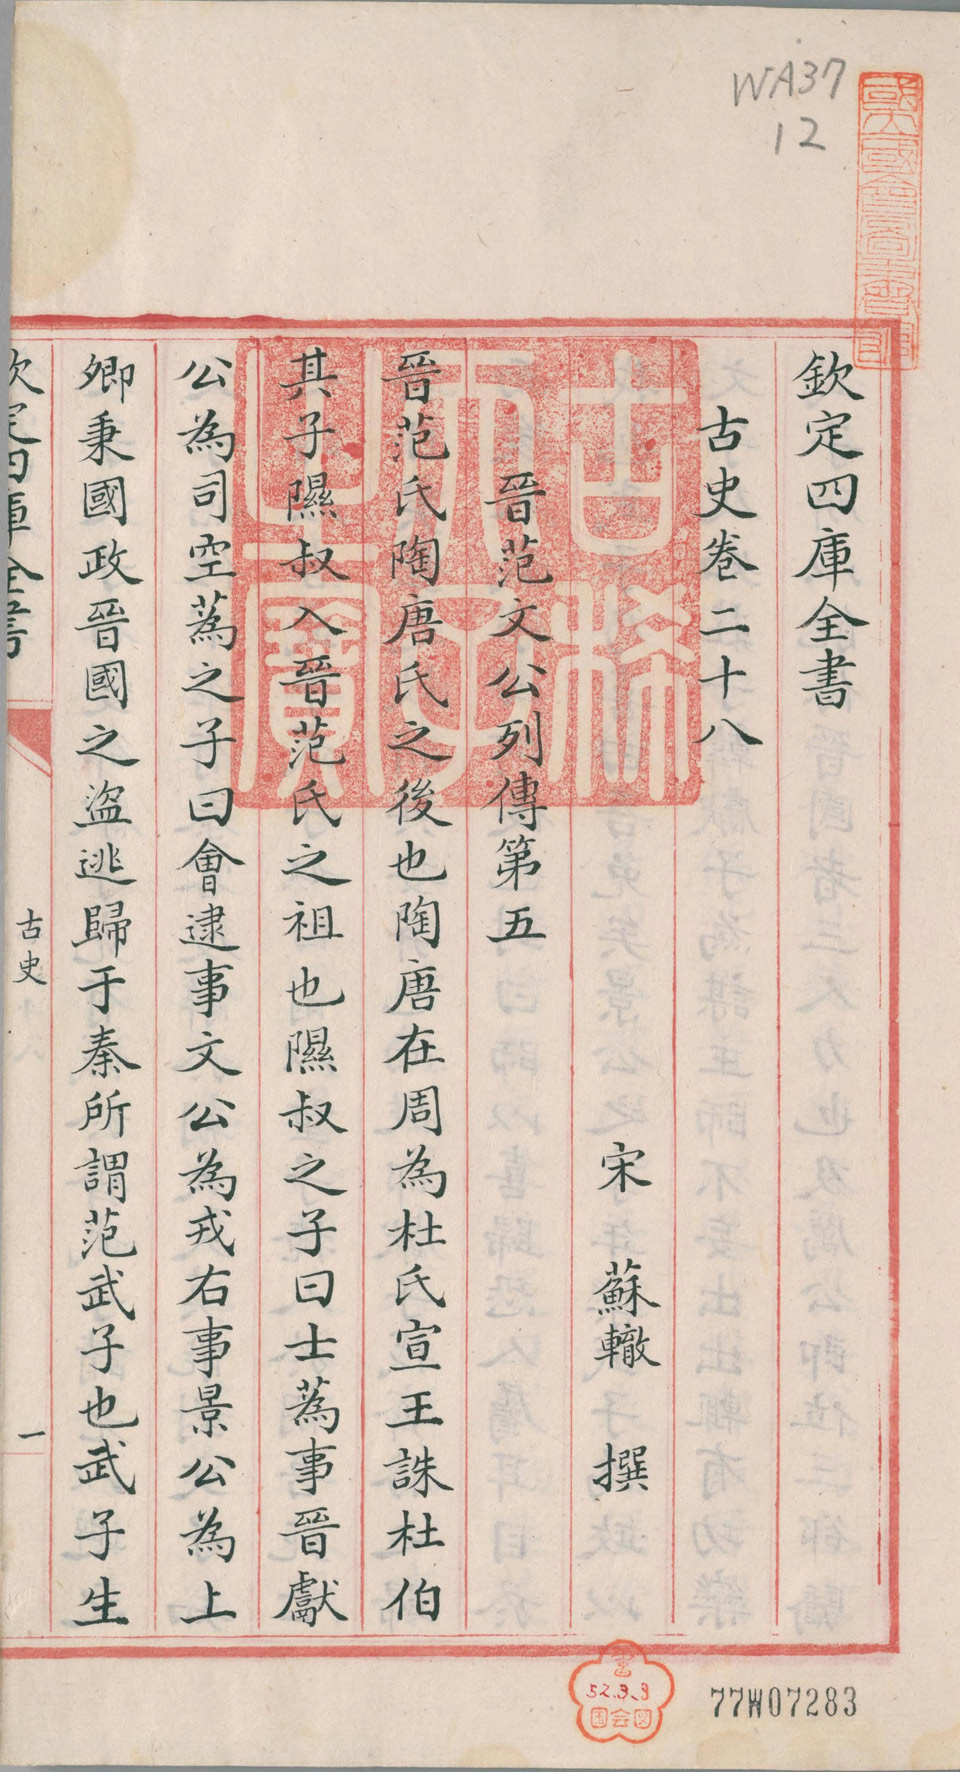 WA37
12
國立國會圖書館
欽定四庫全書
古史卷二十八
宋 蘇轍 撰
晉范文公列傳第五
晉范氏陶唐氏之後也陶唐在周為杜氏宣王誅杜伯
其子隰叔入晉范氏之祖也隰叔之子曰士蒍事晉獻
公為司空蒍之子曰會逮事文公為戎右事景公為上
卿秉國政晉國之盜逃歸于秦所謂范武子也武子生
欽定四庫全書
古史
一
古稀天子之寶
52.3.3
77W07283